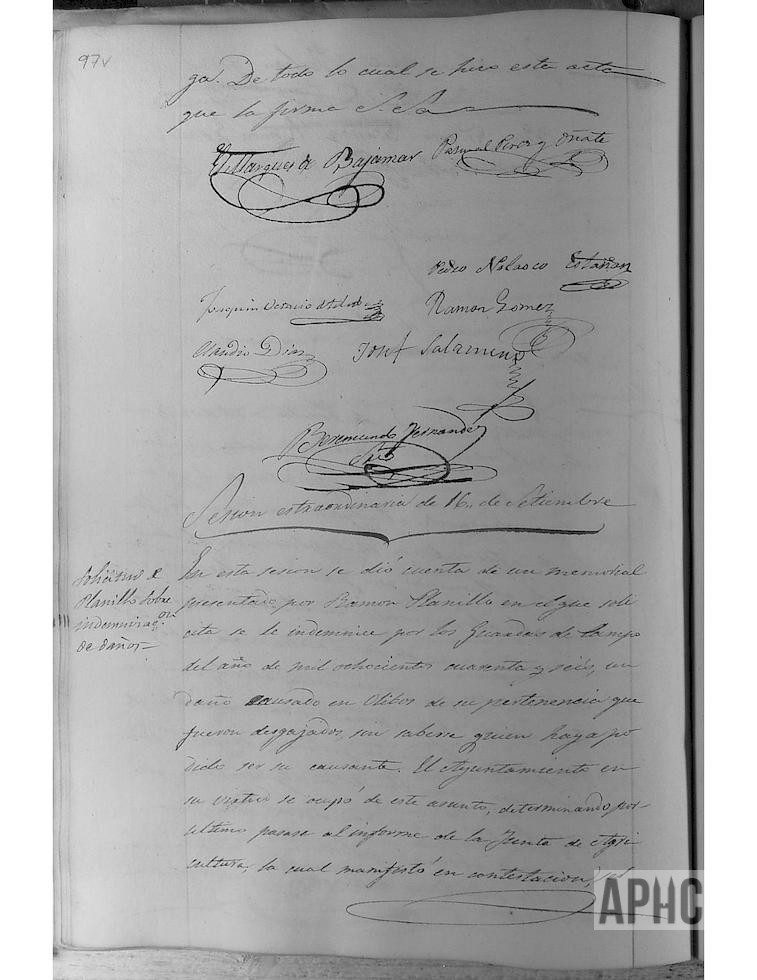 97v
ga. De todo lo cual se hizo esta acta
que la firma S. Sa
El Marques de Bajamar Pascual Perez y Oñate
Pedro Nolasco Estañan
Joaquin Ramon Gomez
Claudio Diaz Josef Salamero
Beremundo Fernandez
Srio
Sesion estraordinaria de 16,, de Setiembre
Solicitud de
Planillo sobre
indemnizaqon
de daños
En esta sesion se dió cuenta de un memorial
presentado por Ramon Planillo en el que soli
cita se le indemnice por los Guardas de Campo
del año de mil ochocientos cuarenta y seis, un
daño causado en Olibos de su pertenencia que
fueron desgajados, sin saberse quien haya po
dido ser su causante. El Ayuntamiento en
su virtud se ocupó de este asunto, determinando por
ultimo pasase al informe de la Junta de Agri
cultura, la cual manifestó en contestacion,
APHC